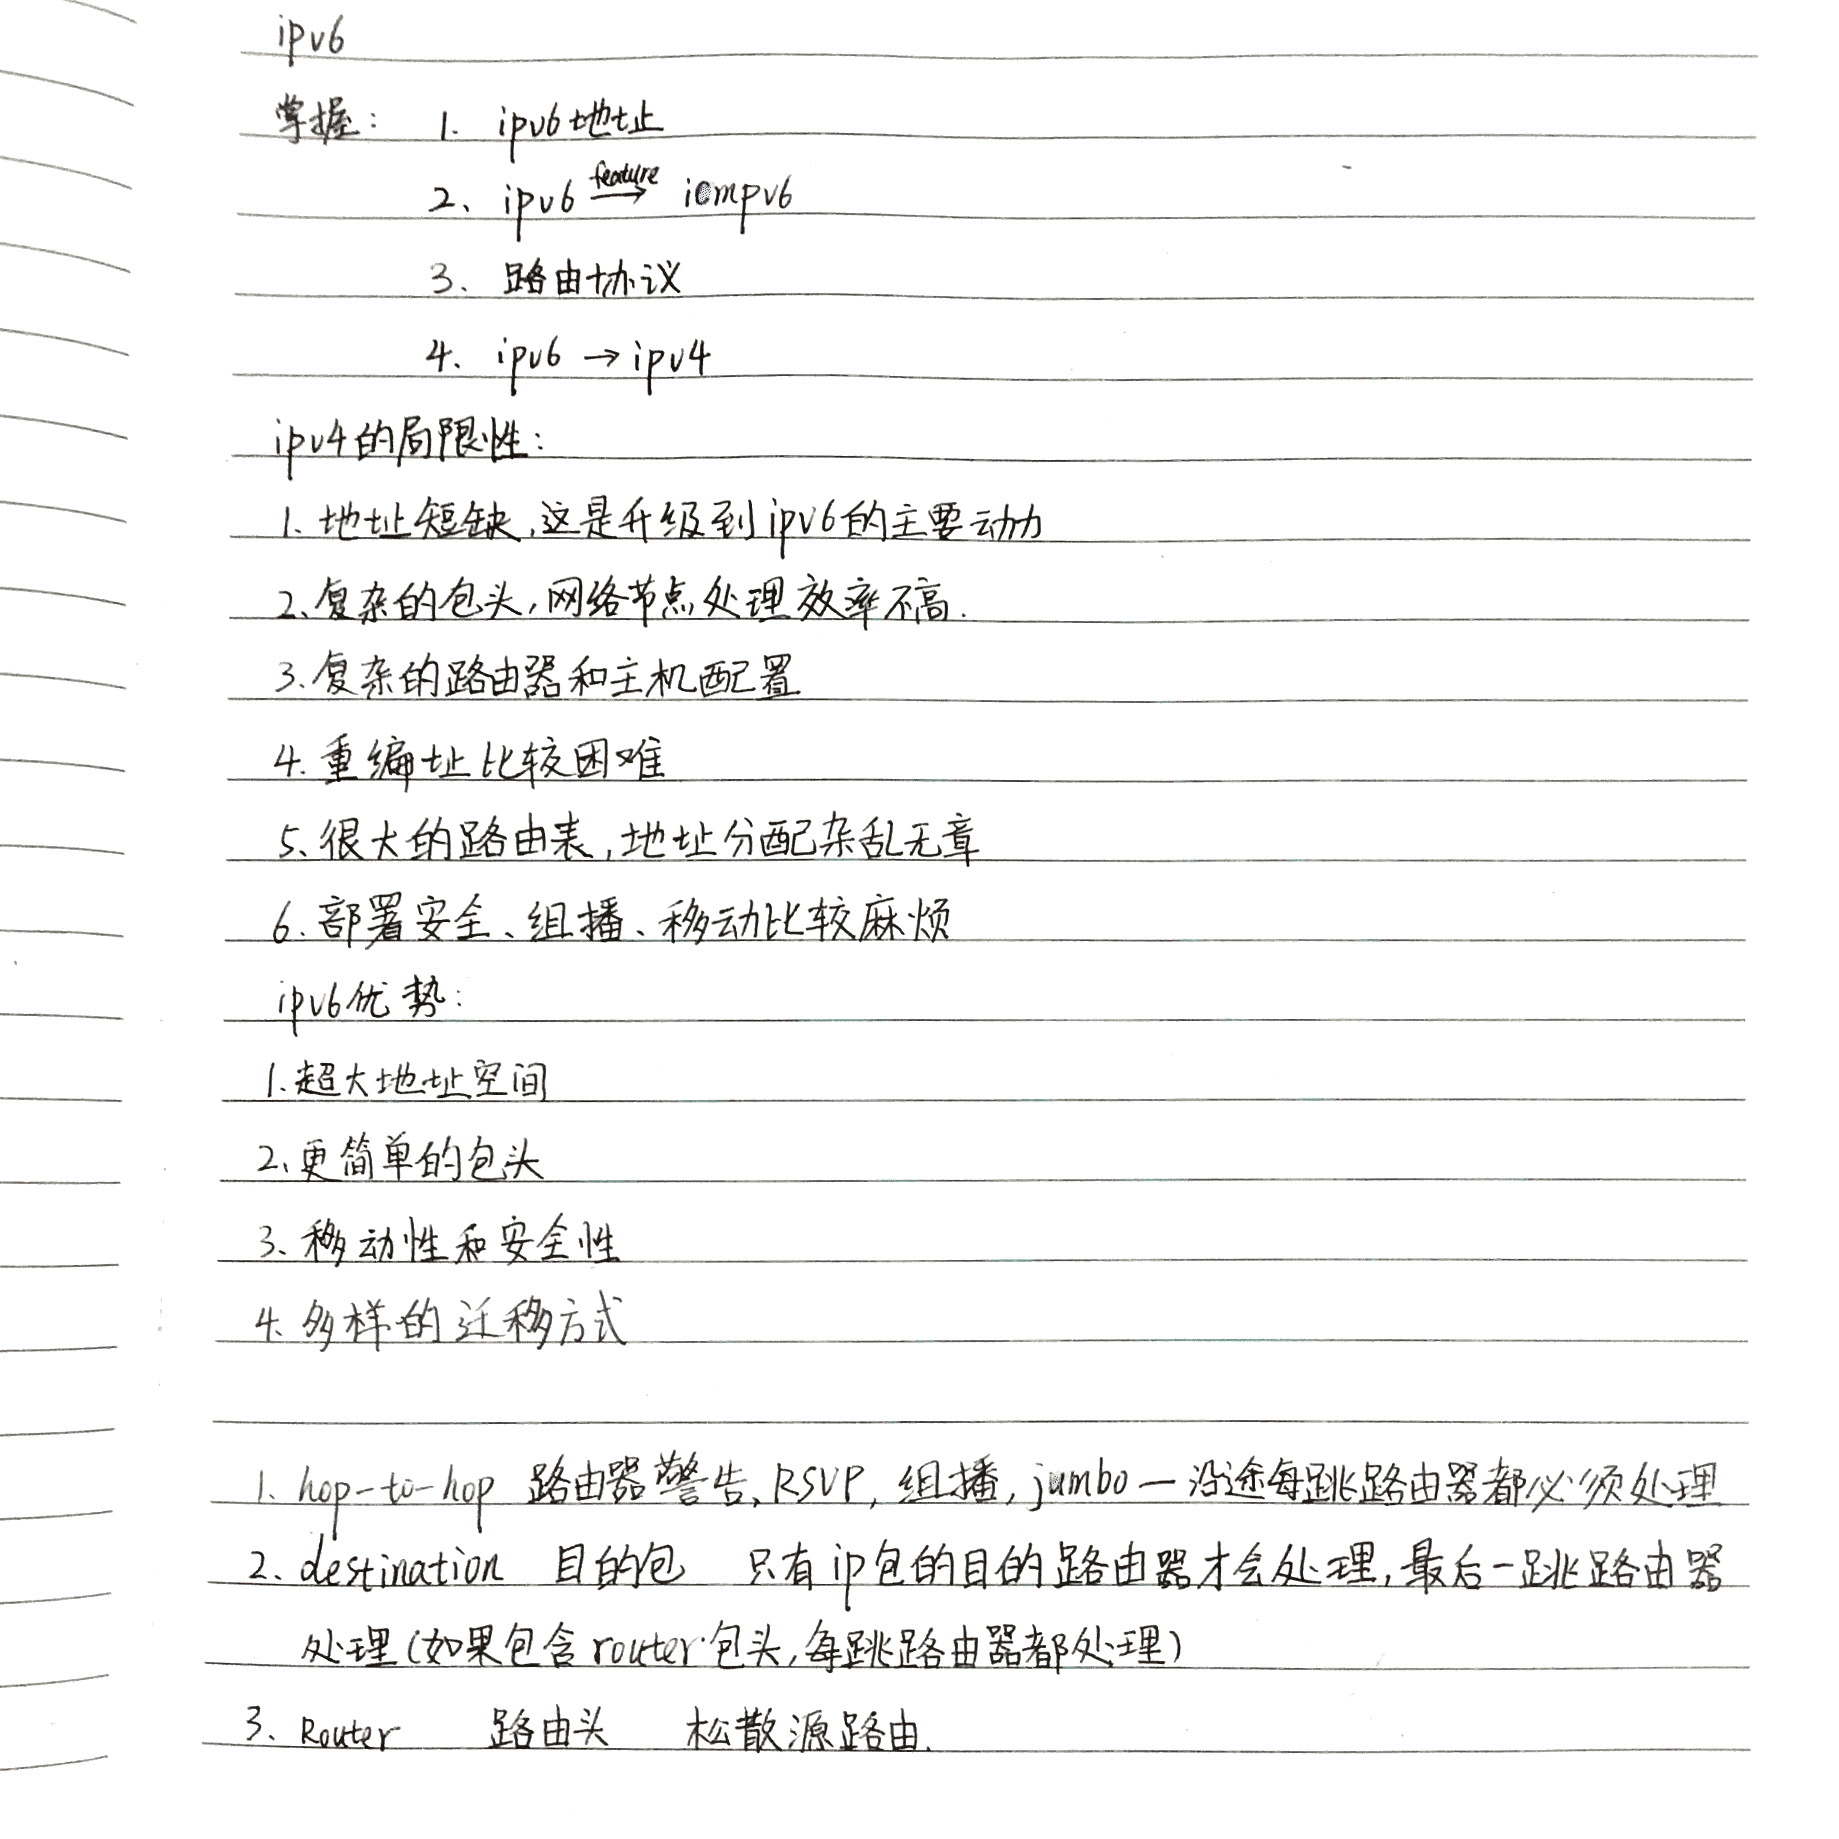 ipv6
掌握: 1. ipv6地址
2、ipv6 feature→ icmpv6
3、路由协议
4、ipv6 → ipv4
ipv4的局限性:
1、地址短缺,这是升级到ipv6的主要动力
2、复杂的包头,网络节点处理效率不高.
3、复杂的路由器和主机配置
4、重编址比较困难
5、很大的路由表,地址分配杂乱无章
6、部署安全、组播、移动比较麻烦
ipv6优势:
1、超大地址空间
2、更简单的包头
3、移动性和安全性
4、多样的迁移方式
1、hop-to-hop 路由器警告, RSVP, 组播, jumbo — 沿途每跳路由器都必须处理
2、destination 目的包 只有ip包的目的路由器才会处理,最后一跳路由器
处理(如果包含router包头,每跳路由器都处理)
3、Router 路由头 松散源路由.